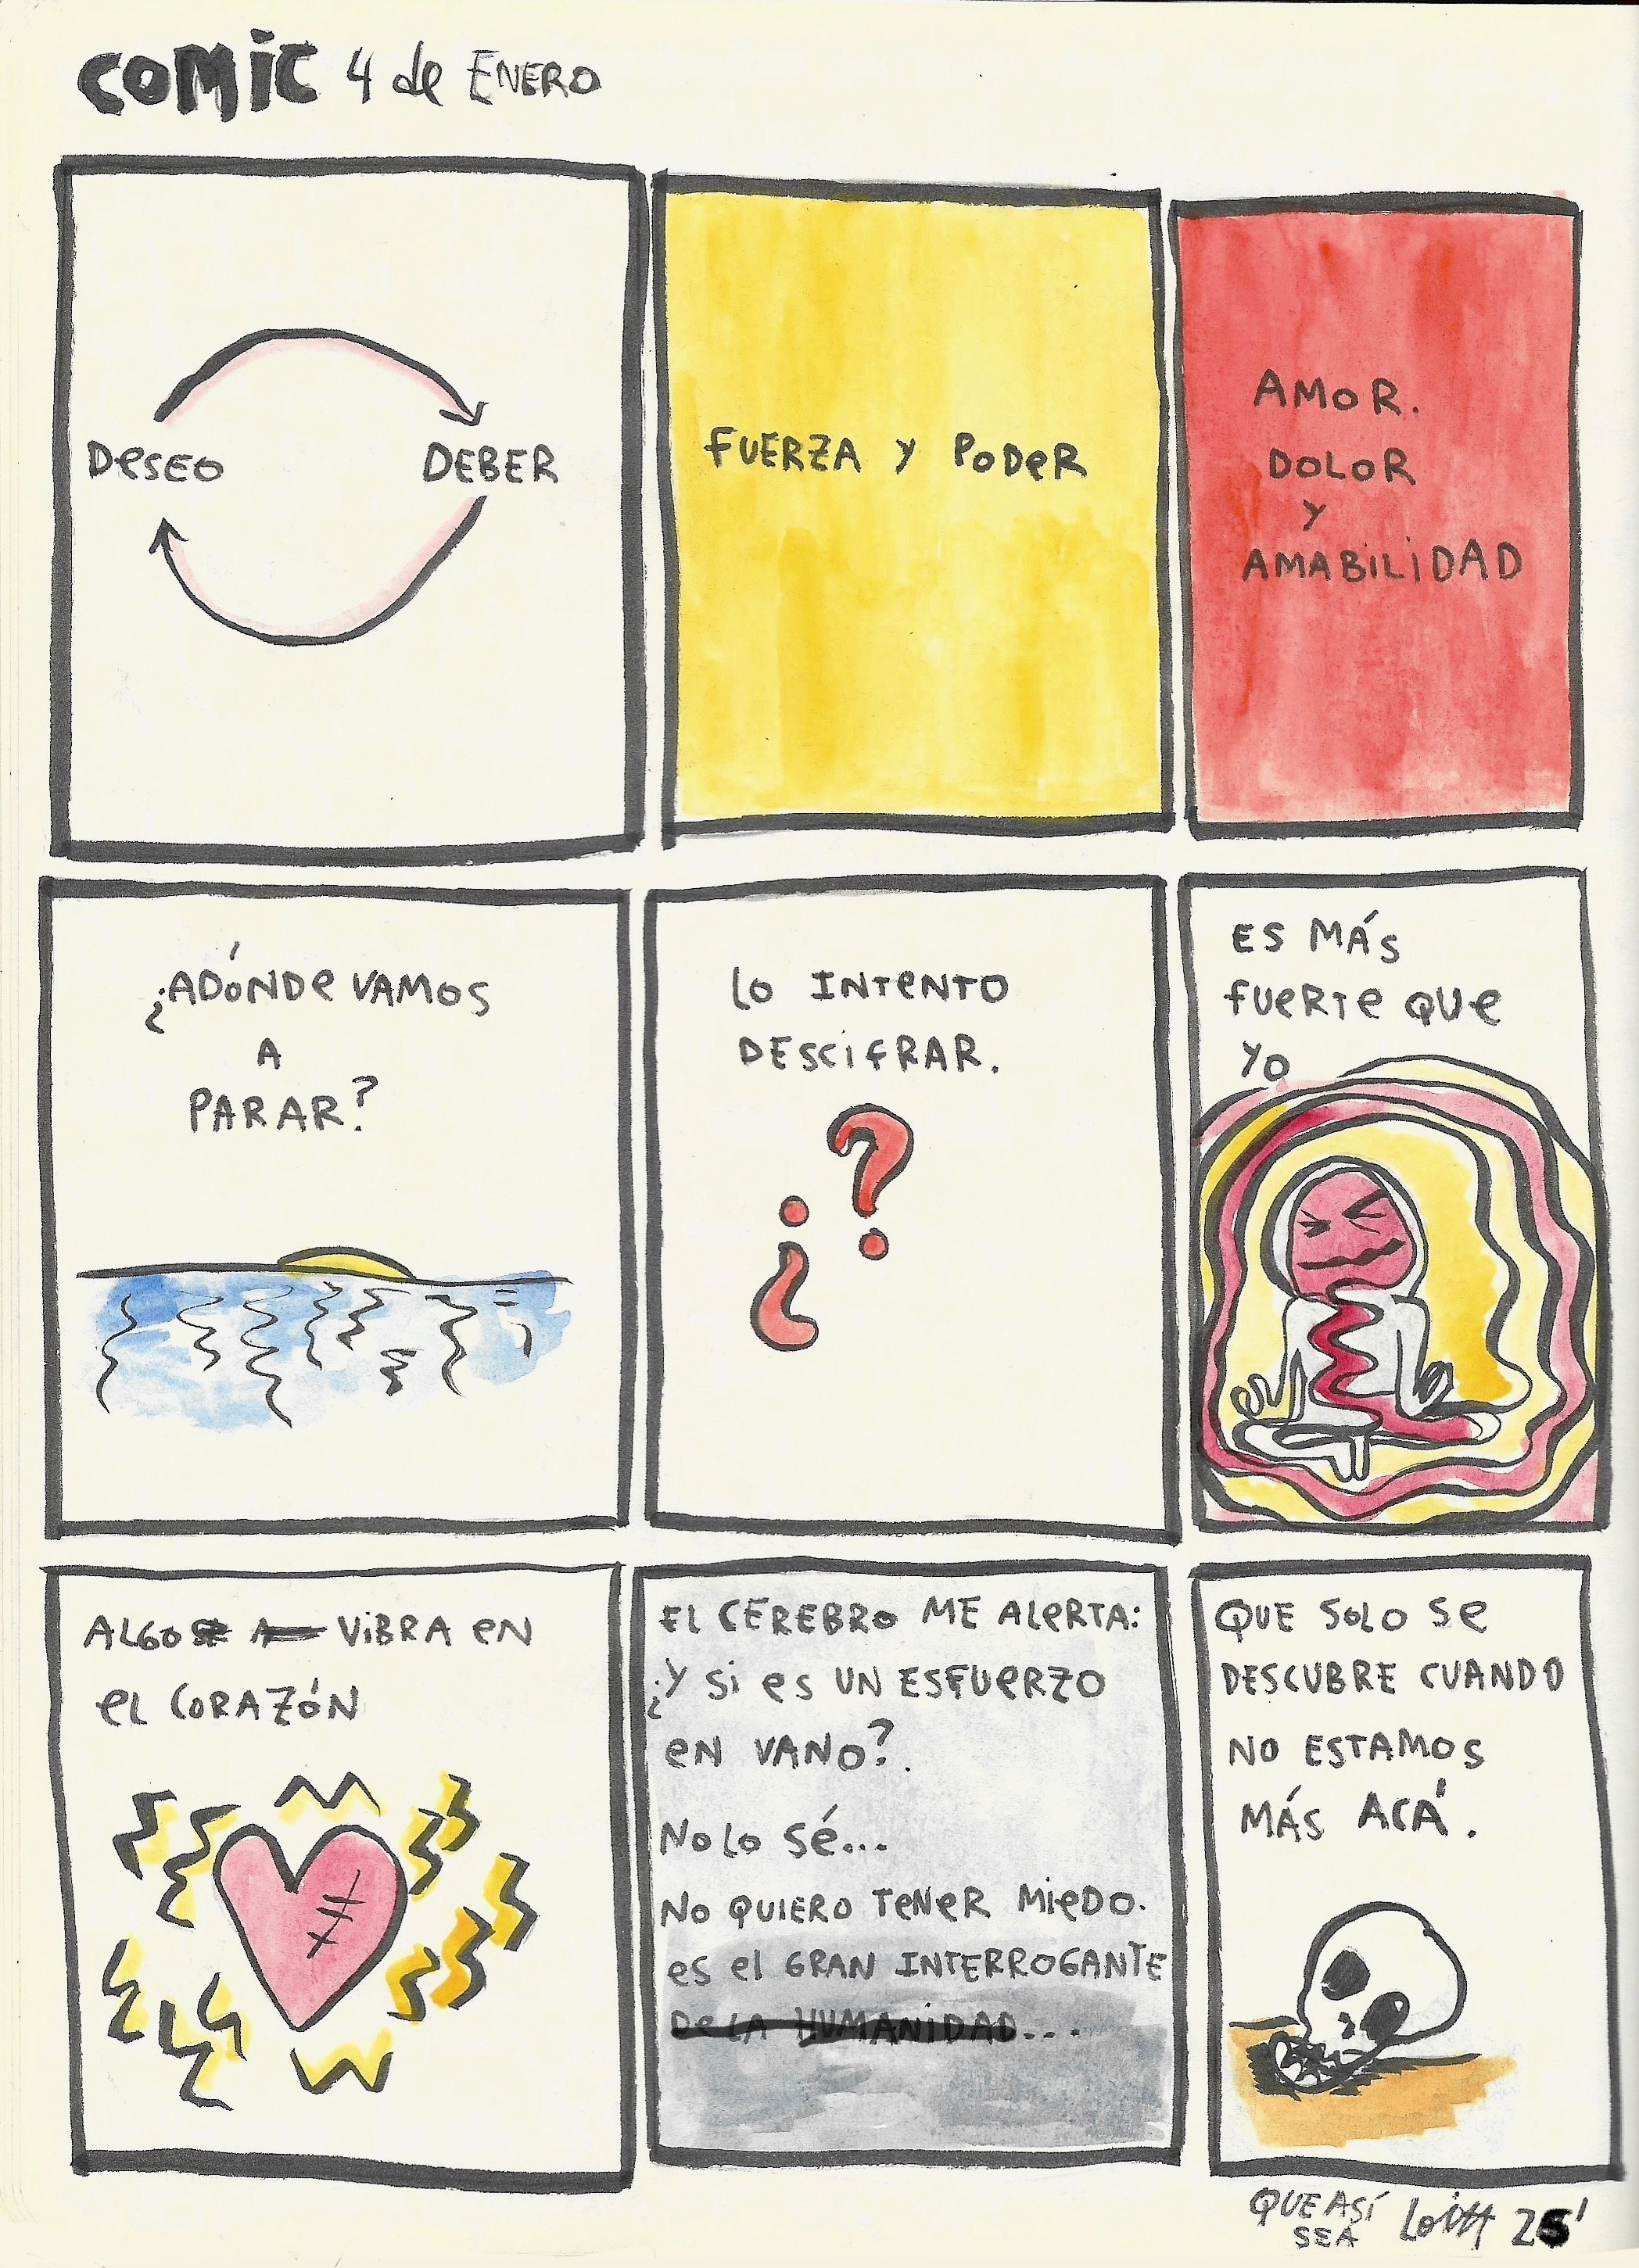 COMIC 4 de ENERO
DESEO
DEBER
FUERZA Y PODER
AMOR.
DOLOR
Y
AMABILIDAD
¿ADÓNDE VAMOS
A
PARAR?
LO INTENTO
DESCIFRAR.
¿?
ES MÁS
FUERTE QUE
YO
ALGO VIBRA EN
EL CORAZÓN
EL CEREBRO ME ALERTA:
¿Y SI ES UN ESFUERZO
EN VANO?.
NO LO SÉ...
NO QUIERO TENER MIEDO.
ES EL GRAN INTERROGANTE
DE LA HUMANIDAD...
QUE SOLO SE
DESCUBRE CUANDO
NO ESTAMOS
MÁS ACÁ.
QUE ASÍ
SEA
25'